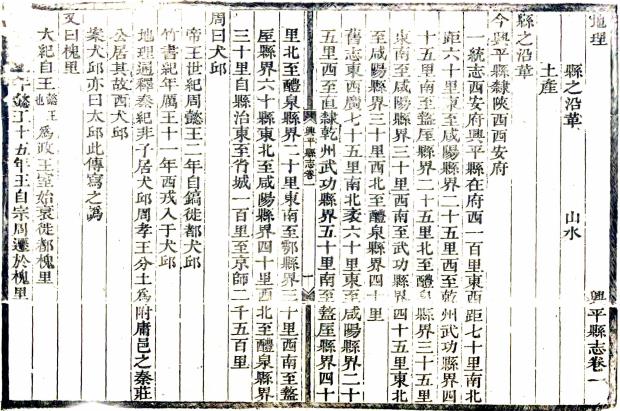 地理 興平縣志卷一
縣之沿革 山水
土產
縣之沿革
今興平縣隸陝西西安府
一統志西安府興平縣在府西一百里東西距七十里南北
距六十里東至咸陽縣界二十五里西至乾州武功縣界四
十五里南至盩厔縣界二十五里北至醴泉縣界三十五里
東南至咸陽縣界三十里西南至武功縣界四十五里東北
至咸陽縣界三十里西北至醴泉縣界四十里
舊志東西廣七十五里南北袤六十里東至咸陽縣界二十
五里西至直隸乾州武功縣界五十里南至盩厔縣界四十
興平縣志卷一 一
里北至醴泉縣界二十里東南至鄠縣界三十里西南至盩
厔縣界六十里東北至咸陽縣界四十里西北至醴泉縣界
三十里自縣治東至省城一百里至京師二千五百里
周曰犬邱
帝王世紀周懿王二年自鎬徙都犬邱
竹書紀年厲王十一年西戎入于犬邱
地理通釋秦紀非子居犬邱周孝王分土為附庸邑之秦莊
公居其故西犬邱
案犬邱亦曰大邱此傳寫之為
又曰槐里
大紀自王懿王也為政王室始衰徙都槐里
懿王十五年王自宗周遷於槐里